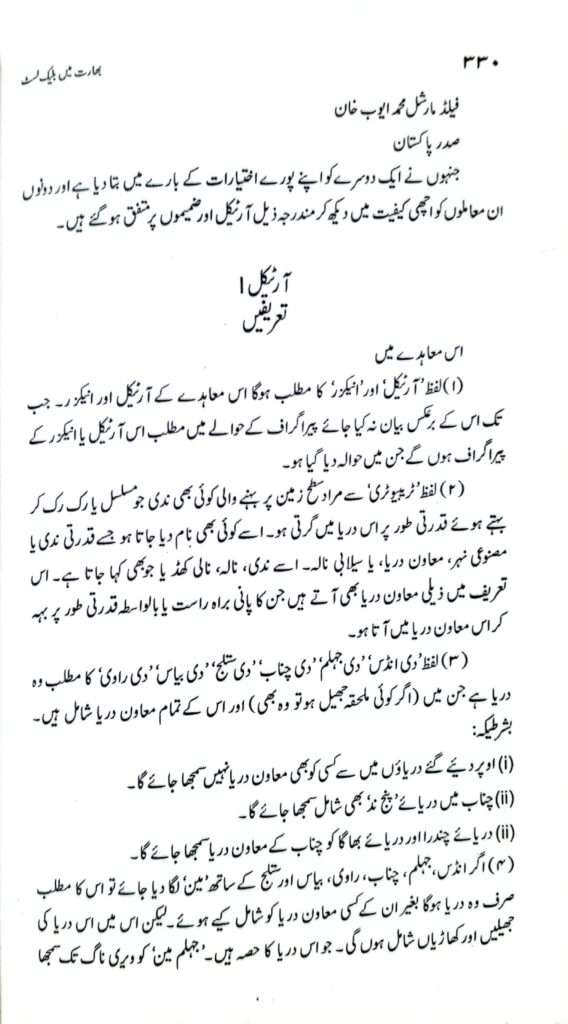 ۳۳۰
بھارت میں بلیک لسٹ
فیلڈ مارشل محمد ایوب خان
صدر پاکستان
جنہوں نے ایک دوسرے کو اپنے پورے اختیارات کے بارے میں بتا دیا ہے اور دونوں
ان معاملوں کو اچھی کیفیت میں دیکھ کر مندرجہ ذیل آرٹیکل اور ضمیموں پر متفق ہو گئے ہیں۔
آرٹیکل I
تعریفیں
اس معاہدے میں
(۱) لفظ ’آرٹیکل‘ اور ’انیکزر‘ کا مطلب ہوگا اس معاہدے کے آرٹیکل اور انیکزر۔ جب
تک اس کے برعکس بیان نہ کیا جائے پیراگراف کے حوالے میں مطلب اس آرٹیکل یا انیکزر کے
پیراگراف ہوں گے جن میں حوالہ دیا گیا ہو۔
(۲) لفظ ’ٹریبیوٹری‘ سے مراد سطح زمین پر بہنے والی کوئی بھی ندی جو مسلسل یا رک رک کر
بہتے ہوئے قدرتی طور پر اس دریا میں گرتی ہو۔ اسے کوئی بھی نام دیا جاتا ہو جسے قدرتی ندی یا
مصنوعی نہر، معاون دریا، یا سیلابی نالہ۔ اسے ندی، نالہ، نالی کھڈ یا جو بھی کہا جاتا ہے۔ اس
تعریف میں ذیلی معاون دریا بھی آتے ہیں جن کا پانی براہ راست یا بالواسطہ قدرتی طور پر بہہ
کر اس معاون دریا میں آتا ہو۔
(۳) لفظ ’دی انڈس‘ ’دی جہلم‘ ’دی چناب‘ ’دی ستلج‘ ’دی بیاس‘ ’دی راوی‘ کا مطلب وہ
دریا ہے جن میں (اگر کوئی ملحقہ جھیل ہو تو وہ بھی) اور اس کے تمام معاون دریا شامل ہیں۔
بشرطیکہ:
(i) اوپر دیئے گئے دریاؤں میں سے کسی کو بھی معاون دریا نہیں سمجھا جائے گا۔
(ii) چناب میں دریائے ’پنج ند‘ بھی شامل سمجھا جائے گا۔
(ii) دریائے چندرا اور دریائے بھاگا کو چناب کے معاون دریا سمجھا جائے گا۔
(۴) اگر انڈس، جہلم، چناب، راوی، بیاس اور ستلج کے ساتھ ’مین‘ لگا دیا جائے تو اس کا مطلب
صرف وہ دریا ہوگا بغیر ان کے کسی معاون دریا کو شامل کیے ہوئے۔ لیکن اس میں اس دریا کی
جھیلیں اور کھاڑیاں شامل ہوں گی۔ جو اس دریا کا حصہ ہیں۔ ’جہلم مین‘ کو ویری ناگ تک سمجھا